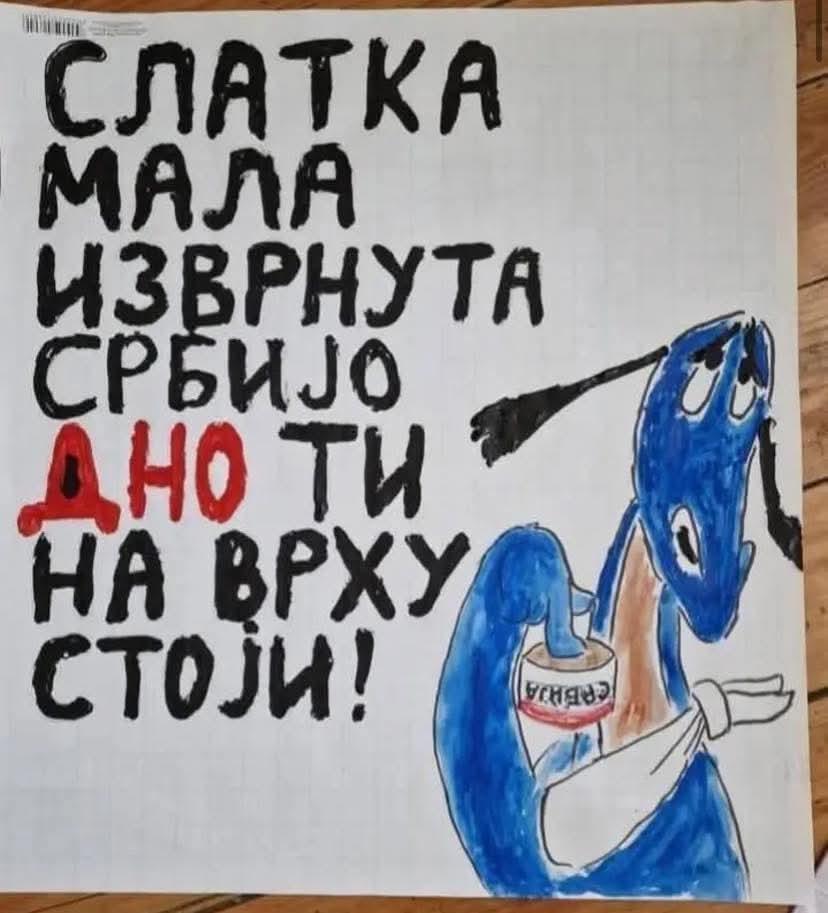 СЛАТКА
МАЛА
ИЗВРНУТА
СРБИЈО
ДНО ТИ
НА ВРХУ
СТОЈИ!
СРБИЈА